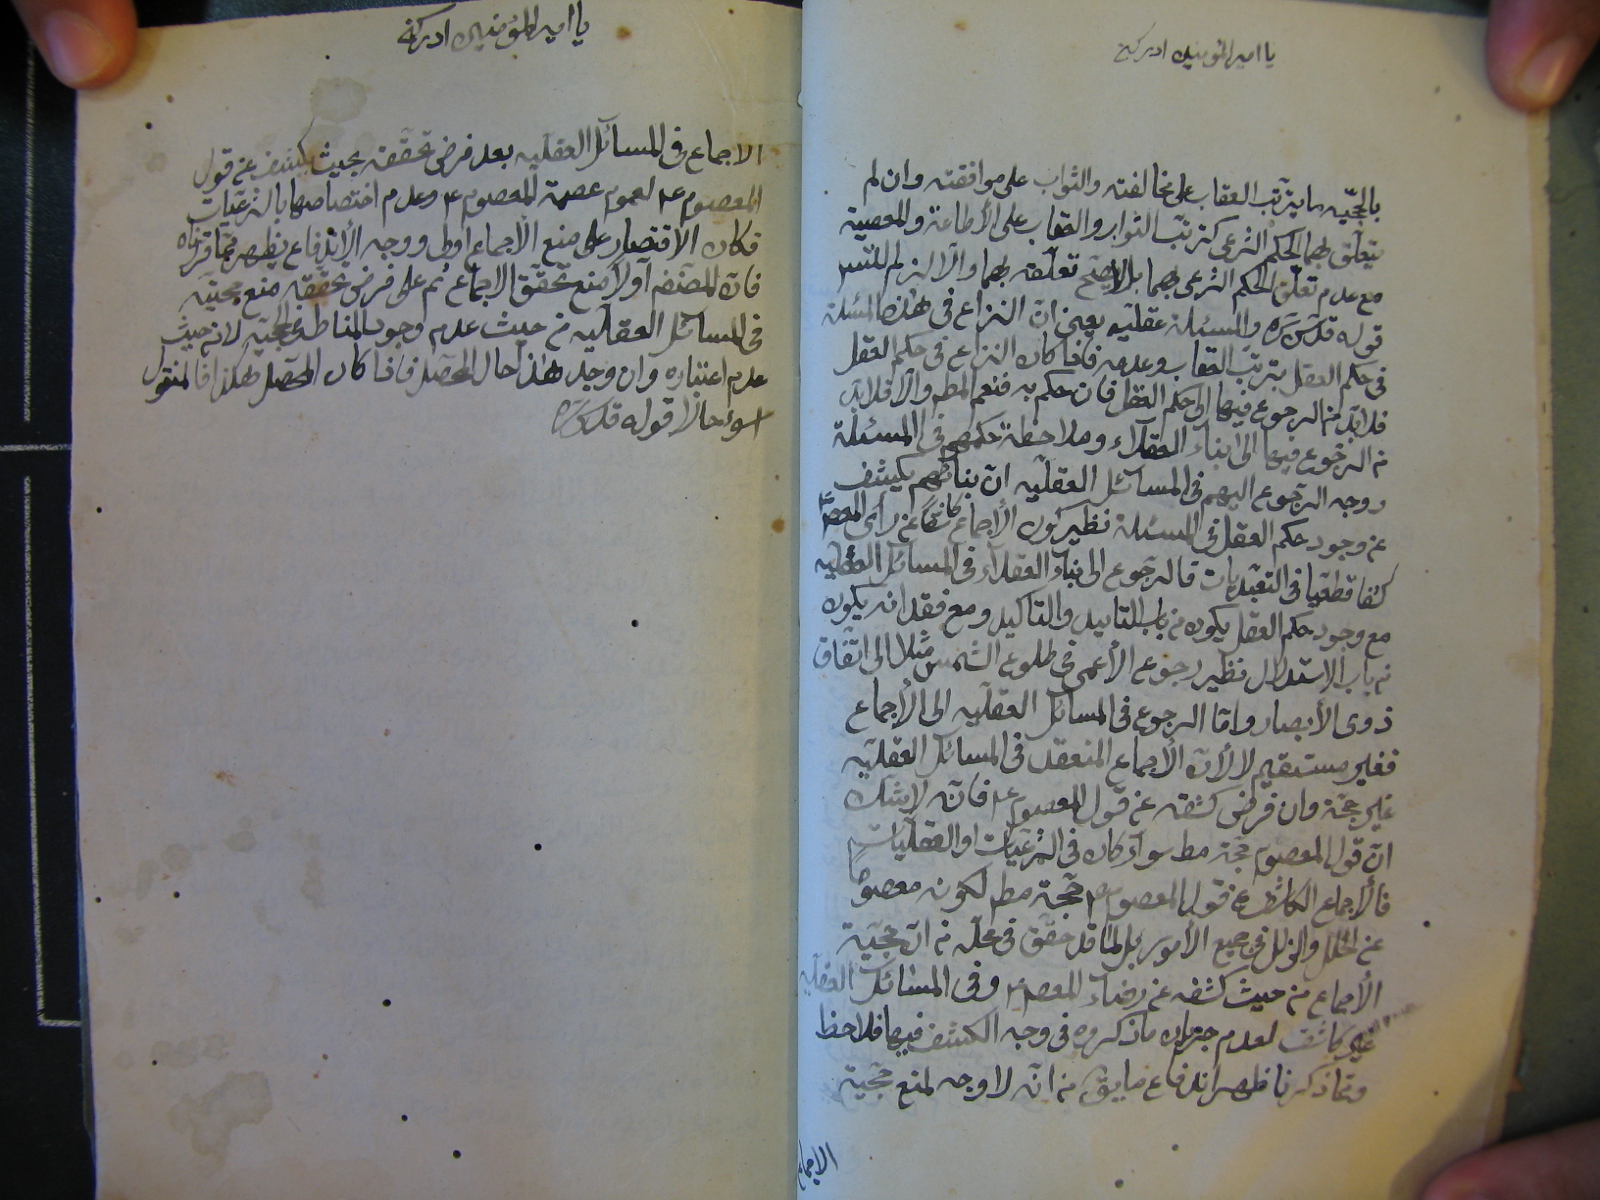 يا امير المؤمنين ادركني
بالحجّيه ما يترتّب العقاب على مخالفته والثواب على موافقته وان لم
يتعلّق بهما الحكم الشرعى كترتّب الثواب والعقاب على الأطاعة والمعصية
مع عدم تعلّق الحكم الشرعى بهما بل لا يصّح تعلّقه بهما والّا لزم التسلسل
قوله قدّس سرّه والمسئلة عقليه يعنى انّ النزاع فى هذه المسئلة
فى حكم العقل بترتّب العقاب وعدمه فاذا كان النزاع فى حكم العقل
فلابّد من الرجوع فيها الى حكم العقل فان حكم به فنعم المطم والّا فلابّد
من الرّجوع فيها الى ابناء العقلاء وملاحظة حكمهم فى المسئلة
ووجه الرّجوع اليهم فى المسائل العقلّيه انّ بنائهم يكشف
عن وجود حكم العقل فى المسئلة نظير كون الأجماع كاشفا عن رأى المعصوم
كشفا قطعّيا فى التعبّديات فالرجوع الى بناء العقلاء فى المسائل العقليه
مع وجود حكم العقل يكون من باب التاييد والتاكيد ومع فقدانه يكون
من باب الاستدلال نظير رجوع الأعمى فى طلوع الشمس مثلا الى اتّفاق
ذوى الأبصار وامّا الرجوع فى المسائل العقلّيه الى الأجماع
فغير مستقيم لا لأنّ الأجماع المنعقد فى المسائل العقلّيه
غير حجّة وان فرض كشفه عن قول المعصوم ع فانّه لا شكّ
انّ قول المعصوم حجّة مط سواء كان فى الشرعّيات او العقلّيات
فالأجماع الكاشف عن قول المعصوم حجّة مطم لكونه معصومًا
عن الخلل والزلل فى جميع الأمور بل لما قد حقّق فى محلّه من انّ حجّية
الأجماع من حيث كشفه عن رضاء المعصوم وفى المسائل العقليّه
غير كاشف لعدم جريان ما ذكروه فى وجه الكشف فيها فلاحظ
وممّا ذكرنا ظهر اندفاع ما يقّ من انّه لا وجه لمنع حجّية
الاجماع
يا امير المؤمنين ادركني
الاجماع فى المسائل العقليه بعد فرض تحقّقه بحيث يكشف عن قول
المعصوم ع لعموم عصمة المعصوم ع وعدم اختصاصها بالشرعّيات
فكان الاقتصار على منع الأجماع اولى ووجه الأندفاع يظهر ممّا قرّرناه
فانّ المصنّف اولًا منع تحقّق الاجماع ثم على فرض تحقّقه منع حجّيته
فى المسائل العقلّيه من حيث عدم وجود المناط فى الحجيّه لا من حيث
عدم اعتباره وان وجد هذا حال المحصّل فاذا كان المحصّل هكذا فالمنقول
اسوء حالًا قوله قدّس سرّه